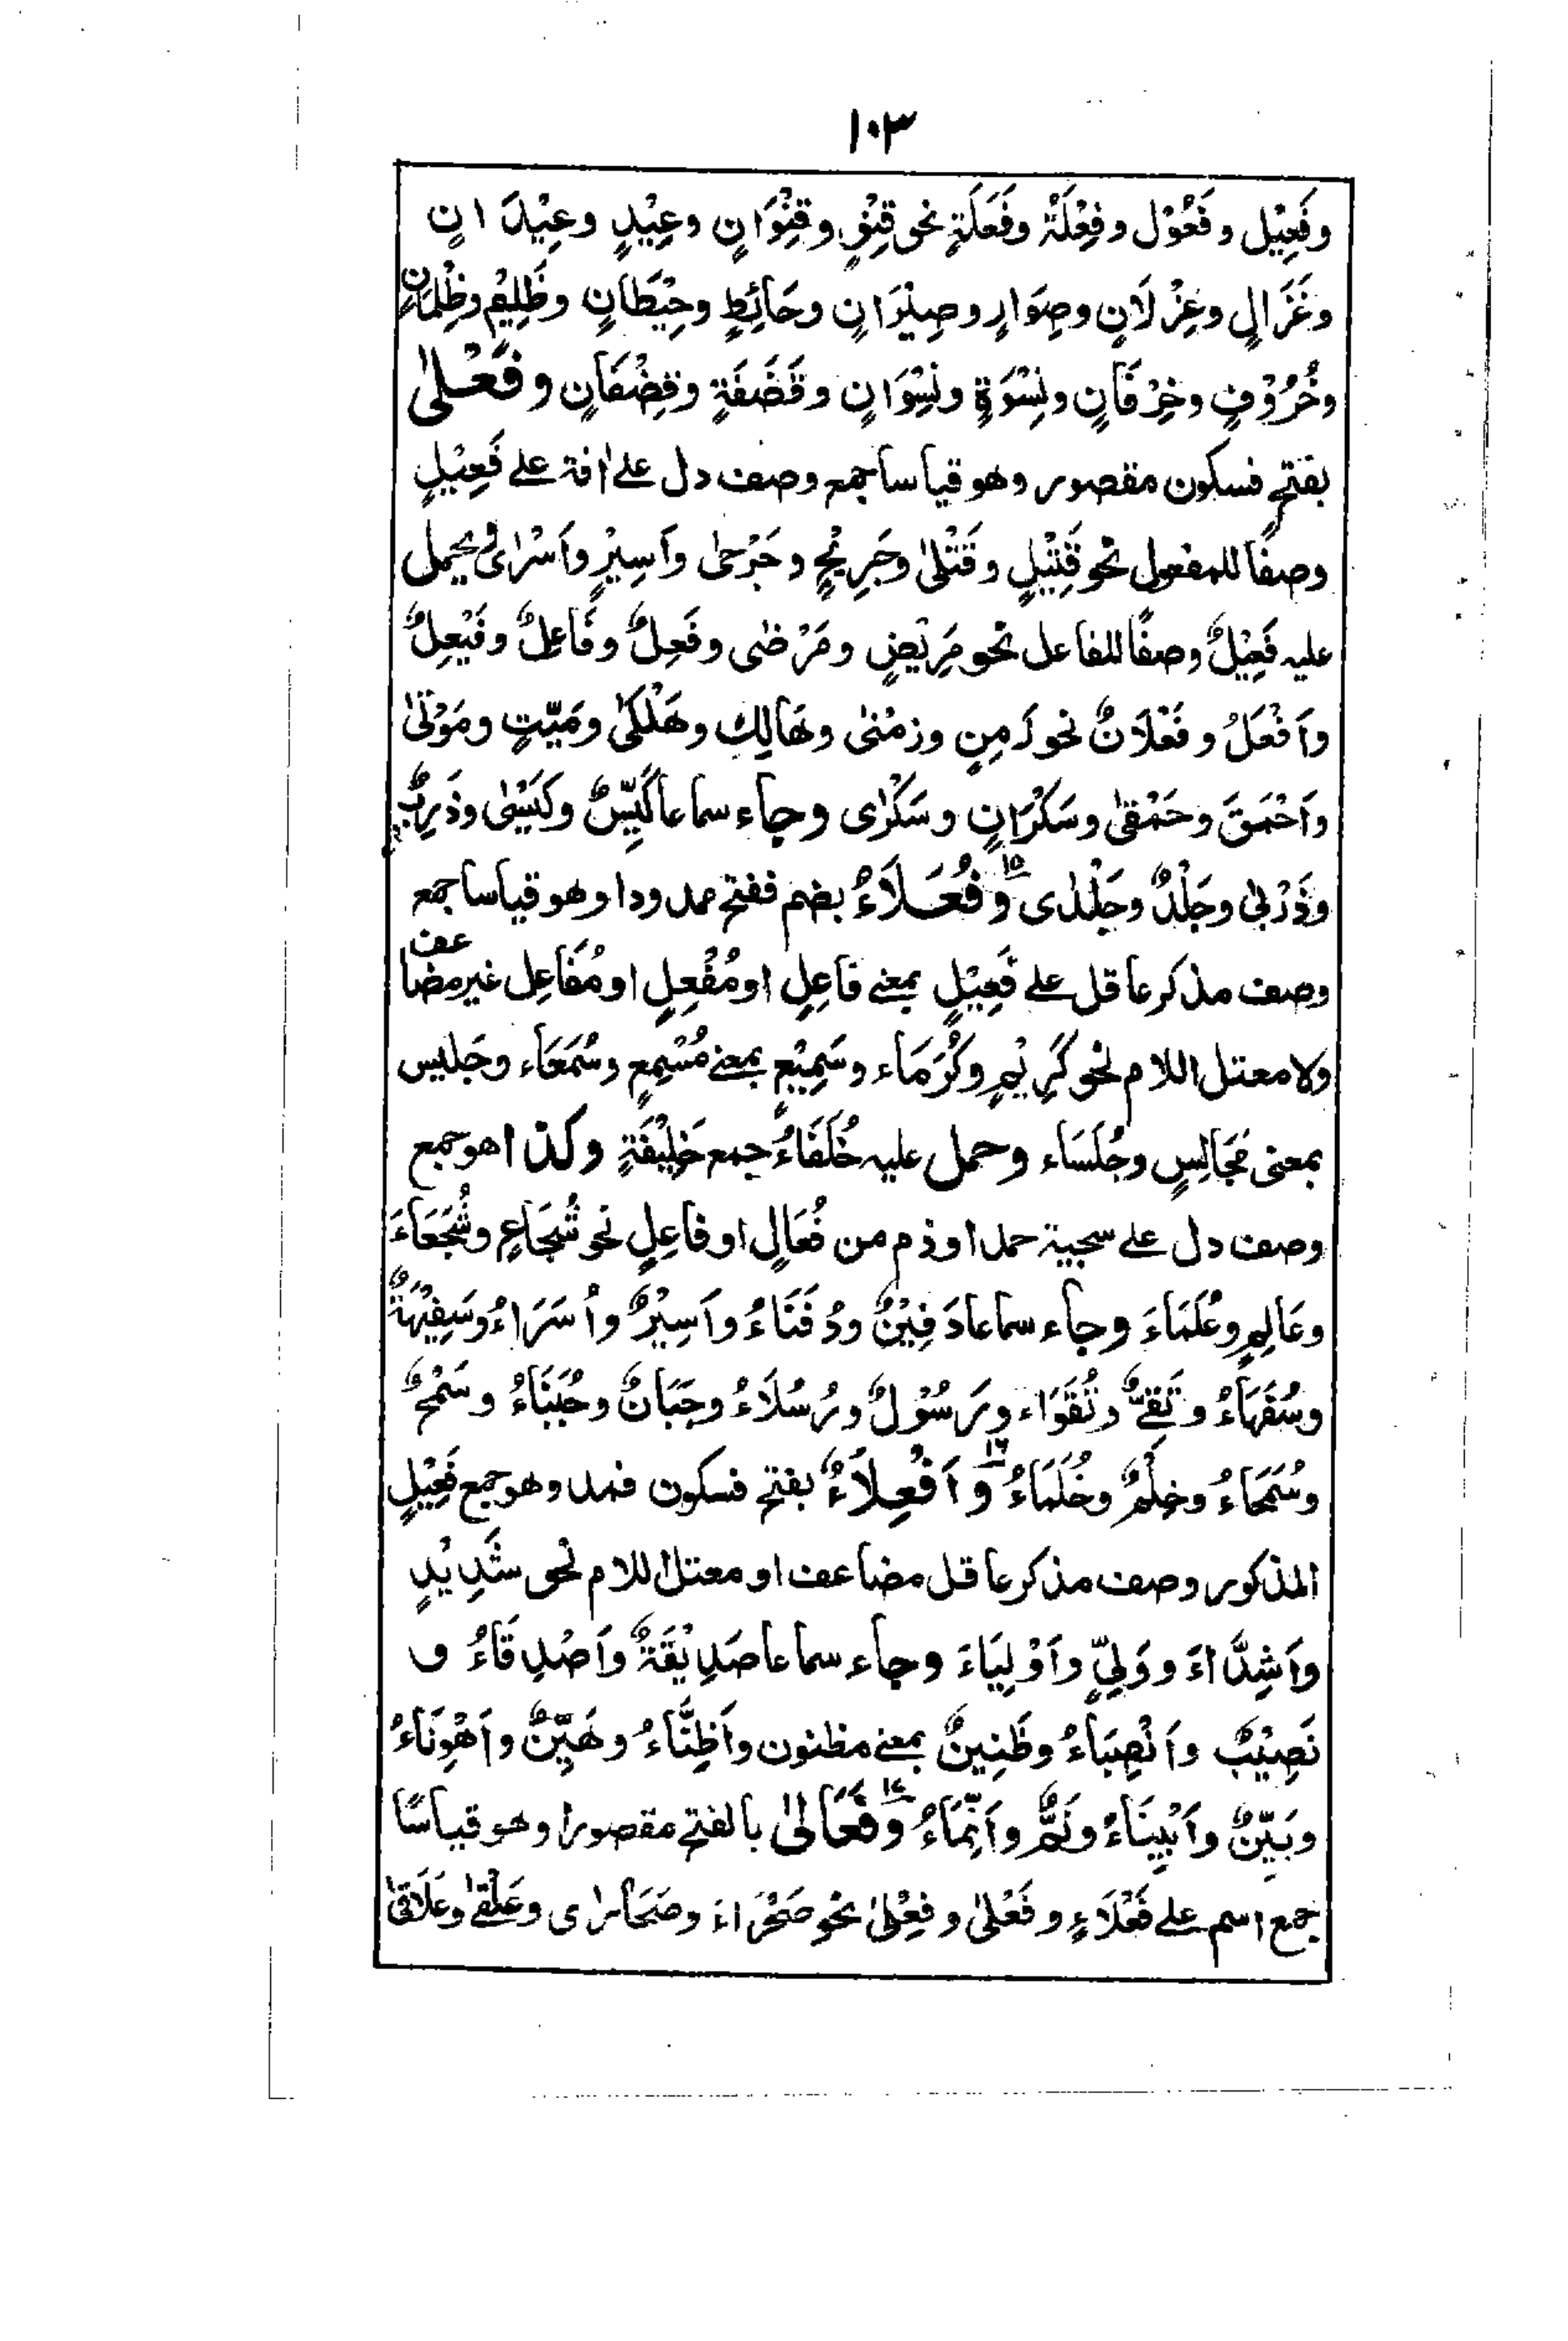 ١٠٣
وفَعِيْل وفَعُوْل وفِعْلَةْ وفَعَلَةٍ نحو قِنْوٍ وقِنْوَانٍ وعِيْدٍ وعِيْدَانٍ
وغَزَالٍ وغِزْلَانٍ وصِوَارٍ وصِيْرَانٍ وحَائِطٍ وحِيْطَانٍ وظَلِيْمٍ وظِلْمَانٍ
وخُرُوْفٍ وخِرْفَانٍ ونِسْوَةٍ ونِسْوَانٍ وقَضَفَةٍ وقِضْفَانٍ وفَعْلىٰ
بفتحٍ فسكون مقصور وهو قياسا جمع وصف دل علىٰ افة على فَعِيْلٍ
وصفًا للمفعول نحو قَتِيْلٍ وقَتْلىٰ وجَرِيْحٍ وجَرْحىٰ واَسِيْرٍ واَسْرٰى ويحمل
عليه فَعِيْلٌ وصفًا للفاعل نحو مَرِيْضٍ ومَرْضٰى وفَعِلٌ وفَاعِلٌ وفَيْعِلٌ
واَفْعَلُ وفَعْلَانٌ نحو زَمِنٍ وزمْنىٰ وهَالِكٍ وهَلْكىٰ ومَيِّتٍ ومَوْتىٰ
واَحْمَقَ وحَمْقىٰ وسَكْرَانٍ وسَكْرٰى وجاء سماعا كَيِّسٌ وكَيْسىٰ وذَرِبٌ
وذَرْبىٰ وجَلْدٌ وجَلْدٰى ١٥ وفُعَلَاءُ بضم ففتح ممدودا وهو قياسا جمع
وصف مذكر عاقل على فَعِيْلٍ بمعنے فاعِلٍ او مُفْعِلٍ او مُفَاعِل غير مضاعف
ولا معتل اللام نحو كَرِيْمٍ وكُرَمَاء وسَمِيْعٍ بمعنے مُسْمِعٍ وسُمَعَاء وجَليس
بمعنى مُجَالِسٍ وجُلَسَاء وحمل عليه خُلَفَاءُ جمع خَلِيْفَةٍ وكذا هو جمع
وصف دل على سجية حمد او ذم من فُعَالٍ او فاعِلٍ نحو شُجَاعٍ وشُجَعَاءَ
وعَالِمٍ وعُلَمَاءَ وجاء سماعا دَفِيْنٌ ودُفَنَاءُ واَسِيْرٌ واُسَرَاءُ وسَفِيْهَةٌ
وسُفَهَاءُ وتَقِيٌّ وتُقَوَاء ورَسُوْلٌ ورُسُلَاءُ وجَبَانٌ وجُبَنَاءُ وسَمْحٌ
وسُمَحَاءُ وخِلْمٌ وخُلَمَاءُ ١٦ واَفْعِلَاءُ بفتح فسكون فمد وهو جمع فَعِيْلٍ
المذكور وصف مذكر عاقل مضاعف او معتل اللام نحو شَدِيْدٍ
واَشِدَّاءَ ووَلِيٍّ واَوْلِيَاءَ وجاء سماعا صَدِيْقَةٌ واَصْدِقَاءُ و
نَصِيْبٌ واَنْصِبَاءُ وظَنِينٌ بمعنے مظنون واَظِنَّاءُ وهَيِّنٌ واَهْوِنَاءُ
وبَيِّنٌ واَبْيِنَاءُ ونَمٌّ واَنِمَّاءُ ١٧ وفَعَالىٰ بالفتح مقصورا وهو قياسًا
جمع اسم على فَعْلَاءٍ وفَعْلىٰ وفِعْلىٰ نحو صَحْرَاءَ وصَحَارٰى وعَلْقىٰ وعَلَاقىٰ